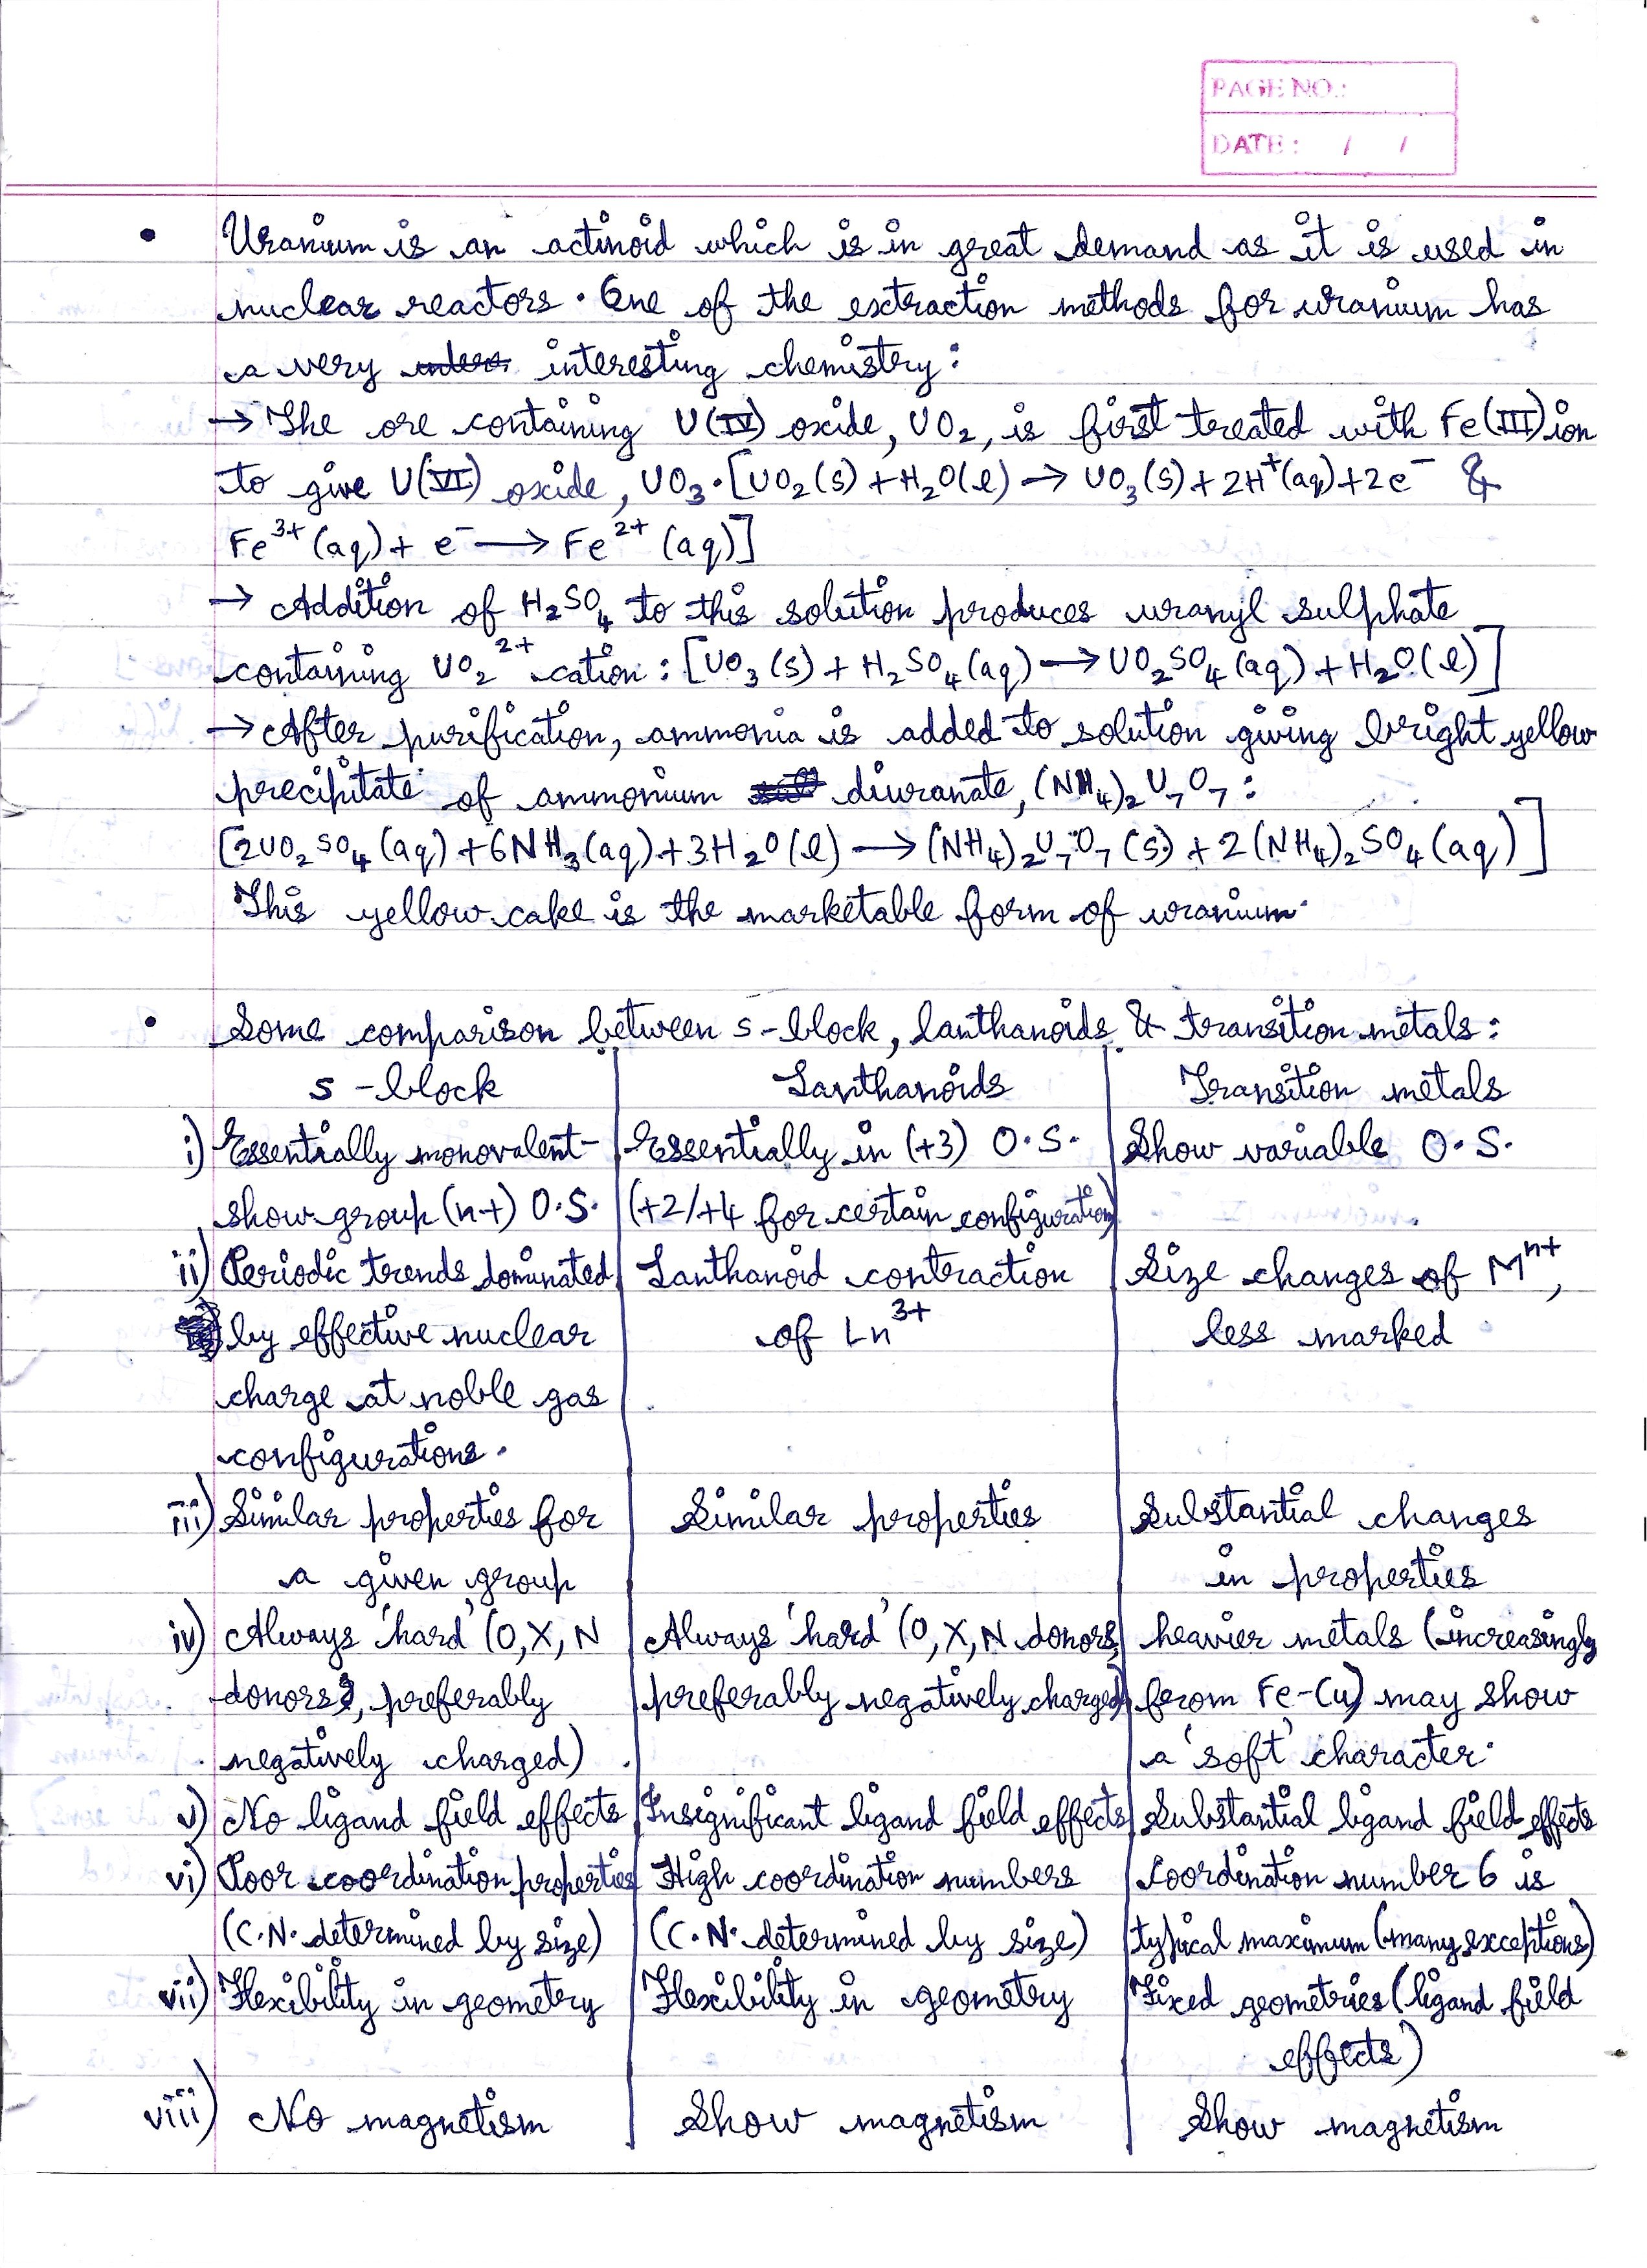 PAGE NO.:
DATE: / /
• Uranium is an actinoid which is in great demand as it is used in
nuclear reactors. One of the extraction methods for uranium has
a very interesting chemistry:
→ The ore containing U(IV) oxide, UO₂, is first treated with Fe(III) ion
to give U(VI) oxide, UO₃. [UO₂(s) + H₂O(l) → UO₃(s) + 2H⁺(aq) + 2e⁻ &
Fe³⁺(aq) + e⁻ → Fe²⁺(aq)]
→ Addition of H₂SO₄ to this solution produces uranyl sulphate
containing UO₂²⁺ cation: [UO₃(s) + H₂SO₄(aq) → UO₂SO₄(aq) + H₂O(l)]
→ After purification, ammonia is added to solution giving bright yellow
precipitate of ammonium diuranate, (NH₄)₂U₇O₇:
[2UO₂SO₄(aq) + 6NH₃(aq) + 3H₂O(l) → (NH₄)₂U₇O₇(s) + 2(NH₄)₂SO₄(aq)]
This yellow cake is the marketable form of uranium.
• Some comparison between s-block, lanthanoids & transition metals:
s-block Lanthanoids Transition metals
i) Essentially monovalent- Essentially in (+3) O.S. Show variable O.S.
show group (n+) O.S. (+2/+4 for certain configuration)
ii) Periodic trends dominated Lanthanoid contraction Size changes of Mⁿ⁺,
by effective nuclear of Ln³⁺ less marked
charge at noble gas
configurations.
iii) Similar properties for Similar properties Substantial changes
a given group in properties
iv) Always 'hard' (O, X, N Always 'hard' (O, X, N donors, heavier metals (increasingly
donors, preferably preferably negatively charged) from Fe-Cu) may show
negatively charged) a 'soft' character.
v) No ligand field effects Insignificant ligand field effects Substantial ligand field effects
vi) Poor coordination properties High coordination numbers Coordination number 6 is
(C.N. determined by size) (C.N. determined by size) typical maximum (many exceptions)
vii) Flexibility in geometry Flexibility in geometry Fixed geometries (ligand field
effects)
viii) No magnetism Show magnetism Show magnetism